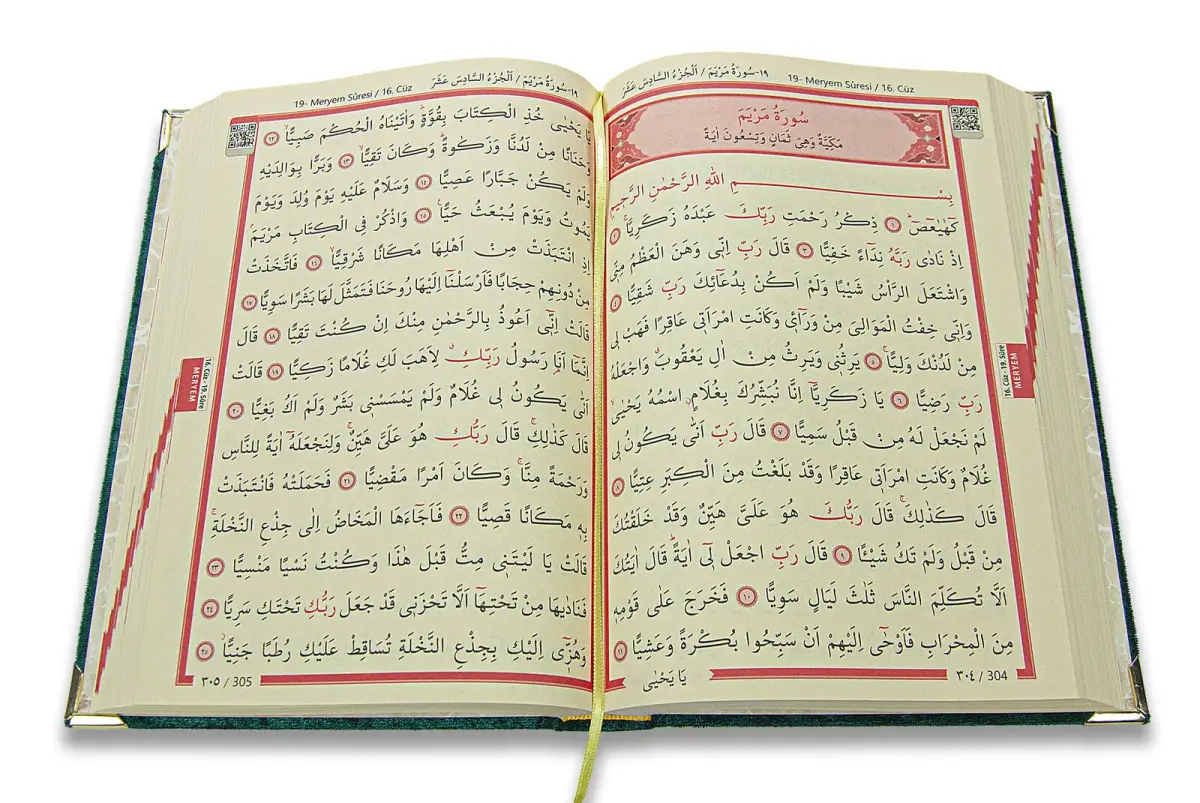 ١٩-سُورَةُ مَرْيَمَ / اَلْجُزْءُ السَّادِسَ عَشَرَ
19- Meryem Sûresi / 16. Cüz
سُورَةُ مَرْيَمَ
مَكِّيَّةٌ وَهِىَ ثَمَانٍ وَتِسْعُونَ اٰيَةً
بِسْــــمِ اللّٰهِ الرَّحْمٰنِ الرَّحِيمِ
كٓهٰيٰعٓصٓ ﴿١﴾ ذِكْرُ رَحْمَتِ رَبِّكَ عَبْدَهُ زَكَرِيَّا ﴿٢﴾
اِذْ نَادٰى رَبَّهُ نِدَٓاءً خَفِيًّا ﴿٣﴾ قَالَ رَبِّ اِنّٖى وَهَنَ الْعَظْمُ مِنّٖى
وَاشْتَعَلَ الرَّأْسُ شَيْبًا وَلَمْ اَكُنْ بِدُعَٓائِكَ رَبِّ شَقِيًّا ﴿٤﴾
وَاِنّٖى خِفْتُ الْمَوَالِىَ مِنْ وَرَٓائٖى وَكَانَتِ امْرَاَتٖى عَاقِرًا فَهَبْ لٖى
مِنْ لَدُنْكَ وَلِيًّا ﴿٥﴾ يَرِثُنٖى وَيَرِثُ مِنْ اٰلِ يَعْقُوبَ وَاجْعَلْهُ
رَبِّ رَضِيًّا ﴿٦﴾ يَا زَكَرِيَّٓا اِنَّا نُبَشِّرُكَ بِغُلَامٍ اسْمُهُ يَحْيٰى
لَمْ نَجْعَلْ لَهُ مِنْ قَبْلُ سَمِيًّا ﴿٧﴾ قَالَ رَبِّ اَنّٰى يَكُونُ لٖى
غُلَامٌ وَكَانَتِ امْرَاَتٖى عَاقِرًا وَقَدْ بَلَغْتُ مِنَ الْكِبَرِ عِتِيًّا ﴿٨﴾
قَالَ كَذٰلِكَ قَالَ رَبُّكَ هُوَ عَلَىَّ هَيِّنٌ وَقَدْ خَلَقْتُكَ
مِنْ قَبْلُ وَلَمْ تَكُ شَيْـًٔا ﴿٩﴾ قَالَ رَبِّ اجْعَلْ لٖٓى اٰيَةً قَالَ اٰيَتُكَ
اَلَّا تُكَلِّمَ النَّاسَ ثَلٰثَ لَيَالٍ سَوِيًّا ﴿١٠﴾ فَخَرَجَ عَلٰى قَوْمِهٖ
مِنَ الْمِحْرَابِ فَاَوْحٰٓى اِلَيْهِمْ اَنْ سَبِّحُوا بُكْرَةً وَعَشِيًّا ﴿١١﴾
٣٠٤ / 304
يَا يَحْيٰى
16. Cüz - 19. Sûre
MERYEM
١٩-سُورَةُ مَرْيَمَ / اَلْجُزْءُ السَّادِسَ عَشَرَ
19- Meryem Sûresi / 16. Cüz
يَا يَحْيٰى خُذِ الْكِتَابَ بِقُوَّةٍ وَاٰتَيْنَاهُ الْحُكْمَ صَبِيًّا ﴿١٢﴾
وَحَنَانًا مِنْ لَدُنَّا وَزَكٰوةً وَكَانَ تَقِيًّا ﴿١٣﴾ وَبَرًّا بِوَالِدَيْهِ
وَلَمْ يَكُنْ جَبَّارًا عَصِيًّا ﴿١٤﴾ وَسَلَامٌ عَلَيْهِ يَوْمَ وُلِدَ وَيَوْمَ
يَمُوتُ وَيَوْمَ يُبْعَثُ حَيًّا ﴿١٥﴾ وَاذْكُرْ فِى الْكِتَابِ مَرْيَمَ
اِذِ انْتَبَذَتْ مِنْ اَهْلِهَا مَكَانًا شَرْقِيًّا ﴿١٦﴾ فَاتَّخَذَتْ
مِنْ دُونِهِمْ حِجَابًا فَاَرْسَلْنَٓا اِلَيْهَا رُوحَنَا فَتَمَثَّلَ لَهَا بَشَرًا سَوِيًّا ﴿١٧﴾
قَالَتْ اِنّٖٓى اَعُوذُ بِالرَّحْمٰنِ مِنْكَ اِنْ كُنْتَ تَقِيًّا ﴿١٨﴾ قَالَ
اِنَّمَٓا اَنَا رَسُولُ رَبِّكِ لِاَهَبَ لَكِ غُلَامًا زَكِيًّا ﴿١٩﴾ قَالَتْ
اَنّٰى يَكُونُ لٖى غُلَامٌ وَلَمْ يَمْسَسْنٖى بَشَرٌ وَلَمْ اَكُ بَغِيًّا ﴿٢٠﴾
قَالَ كَذٰلِكِ قَالَ رَبُّكِ هُوَ عَلَىَّ هَيِّنٌ وَلِنَجْعَلَهُٓ اٰيَةً لِلنَّاسِ
وَرَحْمَةً مِنَّا وَكَانَ اَمْرًا مَقْضِيًّا ﴿٢١﴾ فَحَمَلَتْهُ فَانْتَبَذَتْ
بِهٖ مَكَانًا قَصِيًّا ﴿٢٢﴾ فَاَجَٓاءَهَا الْمَخَاضُ اِلٰى جِذْعِ النَّخْلَةِ
قَالَتْ يَا لَيْتَنٖى مِتُّ قَبْلَ هٰذَا وَكُنْتُ نَسْيًا مَنْسِيًّا ﴿٢٣﴾
فَنَادٰيهَا مِنْ تَحْتِهَٓا اَلَّا تَحْزَنٖى قَدْ جَعَلَ رَبُّكِ تَحْتَكِ سَرِيًّا ﴿٢٤﴾
وَهُزّٖٓى اِلَيْكِ بِجِذْعِ النَّخْلَةِ تُسَاقِطْ عَلَيْكِ رُطَبًا جَنِيًّا ﴿٢٥﴾
٣٠٥ / 305
16. Cüz - 19. Sûre
MERYEM